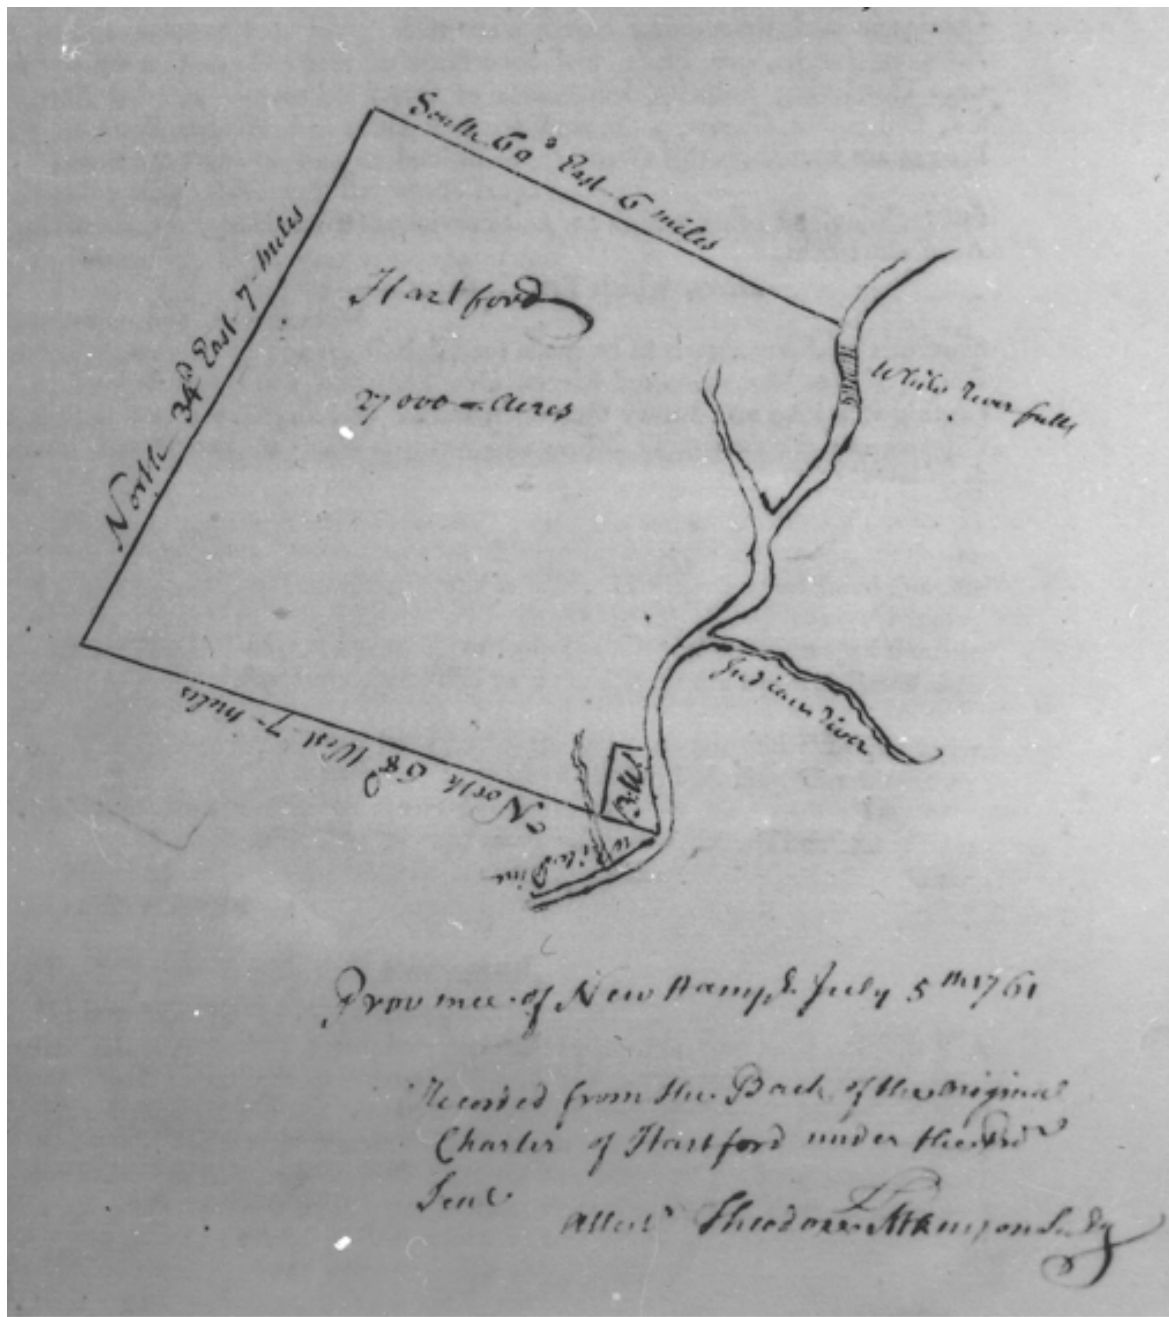 South 60° East - 6 miles
North 34D East - 7 - miles
Hartford
27000 - Acres
White River falls
Indian River
North 68D West - 7 - miles
B:W
White Pine
Province of New Hampr. July 5th 1761
Recorded from the Back of the original
Charter of Hartford under the Pro
Seal
Attestr Theodore Atkinson Secry